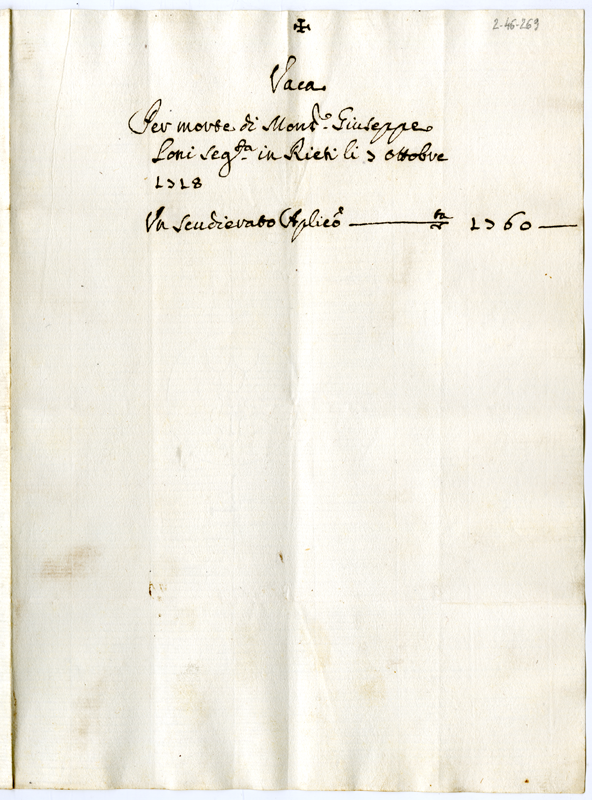 ✠
2-46-269
Vaca
Per morte di Mons.re Giuseppe
Loni seg.ta in Rieti li 7 ottobre
1718
Un scudierato Aplic.o — 1760 —